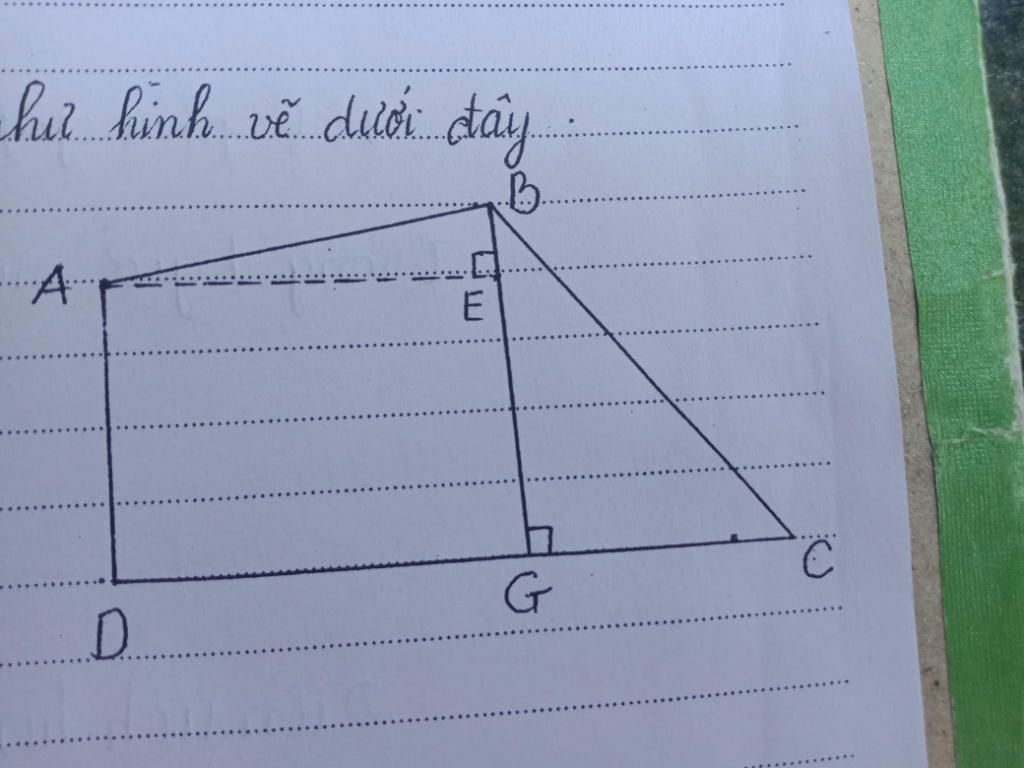 như hình vẽ dưới đây.
B
A
E
G
C
D